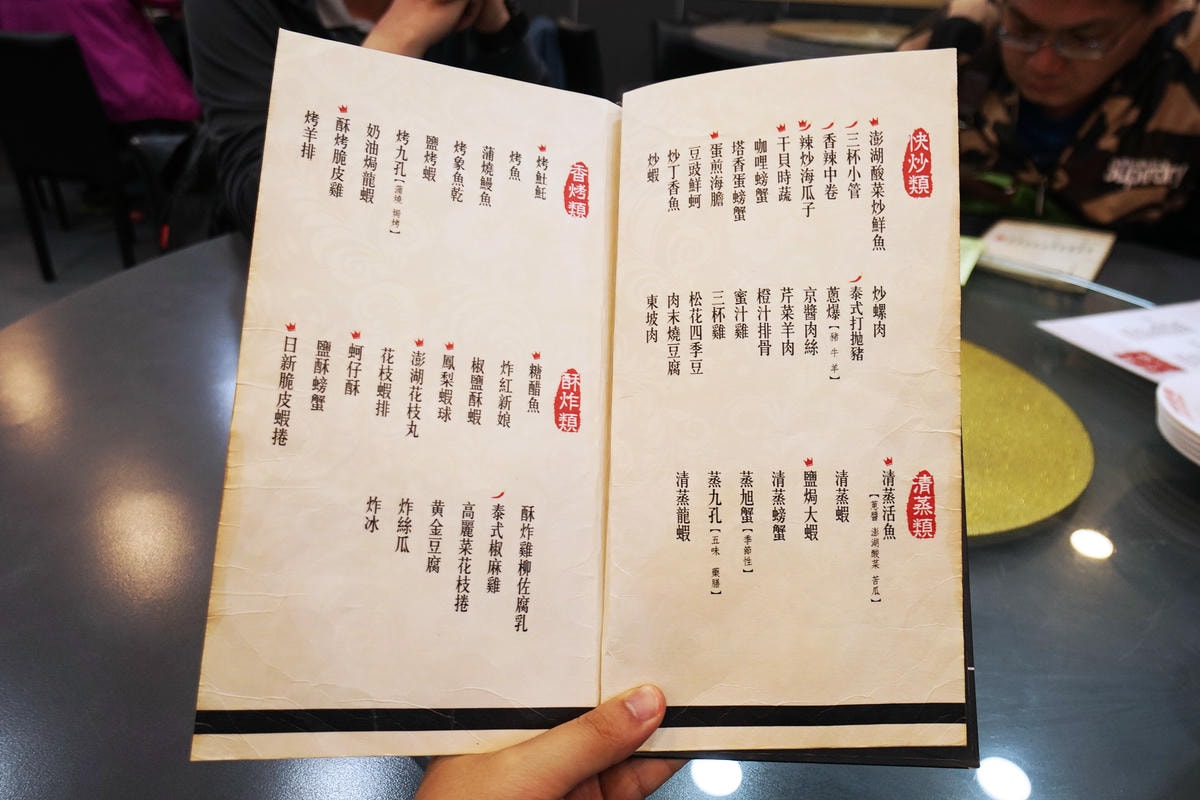 快炒類
澎湖酸菜炒鮮魚
三杯小管
香辣中卷
辣炒海瓜子
干貝時蔬
咖哩螃蟹
塔香蛋螃蟹
蛋煎海膽
豆豉鮮蚵
炒丁香魚
炒蝦
炒螺肉
泰式打拋豬
蔥爆【豬 牛 羊】
京醬肉絲
芹菜羊肉
橙汁排骨
蜜汁雞
三杯雞
松花四季豆
肉末燒豆腐
東坡肉
清蒸類
清蒸活魚
【蔥醬 澎湖酸菜 苦瓜】
清蒸蝦
鹽焗大蝦
清蒸螃蟹
蒸旭蟹【季節性】
蒸九孔【五味 藥膳】
清蒸龍蝦
香烤類
烤魟魠
烤魚
蒲燒鰻魚
烤象魚乾
鹽烤蝦
烤九孔【蒲燒 焗烤】
奶油焗龍蝦
酥烤脆皮雞
烤羊排
酥炸類
糖醋魚
炸紅新娘
椒鹽酥蝦
鳳梨蝦球
澎湖花枝丸
花枝蝦排
蚵仔酥
鹽酥螃蟹
日新脆皮蝦捲
酥炸雞柳佐腐乳
泰式椒麻雞
高麗菜花枝捲
黃金豆腐
炸絲瓜
炸冰